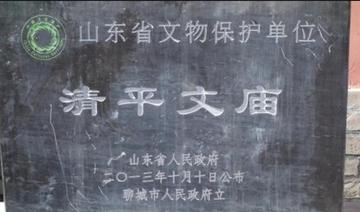 山东省文物保护单位
清平文庙
山东省人民政府
二〇一三年十月十日公布
聊城市人民政府立